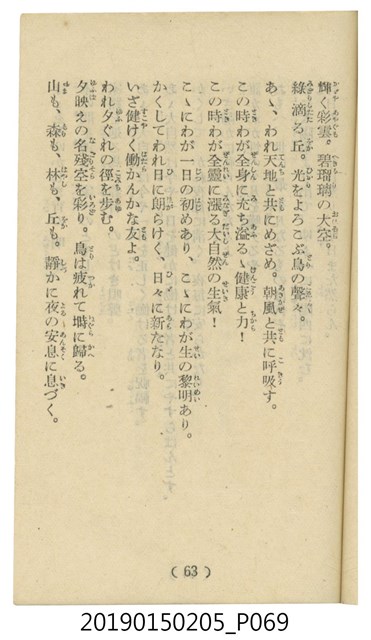 輝く彩雲。碧瑠璃の大空。
綠滴る丘。光をよろこぶ鳥の聲々。
あゝ、われ天地と共にめざめ。朝風と共に呼吸す。
この時わが全身に充ち溢るゝ健康と力！
この時わが全靈に漲る大自然の生氣！
こゝにわが一日の初めあり、こゝにわが生の黎明あり。
かくしてわれ日に朗らけく、日々に新たなり。
いざ健けく働かんかな友よ。
われ夕ぐれの徑を步む。
夕映えの名殘空を彩り。鳥は疲れて塒に歸る。
山も、森も、林も、丘も。靜かに夜の安息に息づく。
( 63 )
20190150205_P069